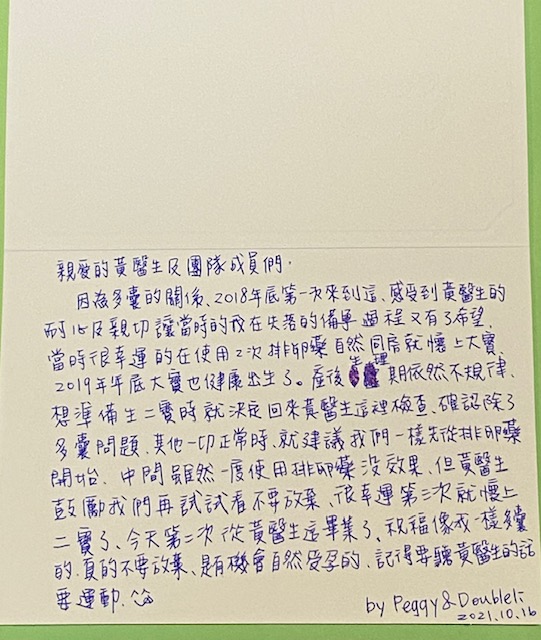 親愛的黃醫生及團隊成員們.
因為多囊的關係、2018年底第一次來到這、感受到黃醫生的
耐心及親切讓當時的我在失落的備孕過程又有了希望,
當時很幸運的在使用2次排卵藥自然同房就懷上大寶,
2019年年底大寶也健康出生了。產後生理期依然不規律,
想準備生二寶時就決定回來黃醫生這裡檢查、確認除了
多囊問題、其他一切正常時、就建議我們一樣先從排卵藥
開始. 中間雖然一度使用排卵藥沒效果、但黃醫生
鼓勵我們再試試看不要放棄、很幸運第三次就懷上
二寶了、今天第二次從黃醫生這畢業了、祝福像我一樣多囊
的.真的不要放棄、是有機會自然受孕的、記得要聽黃醫生的話
要運動.
by Peggy & Doubleli
2021.10.16